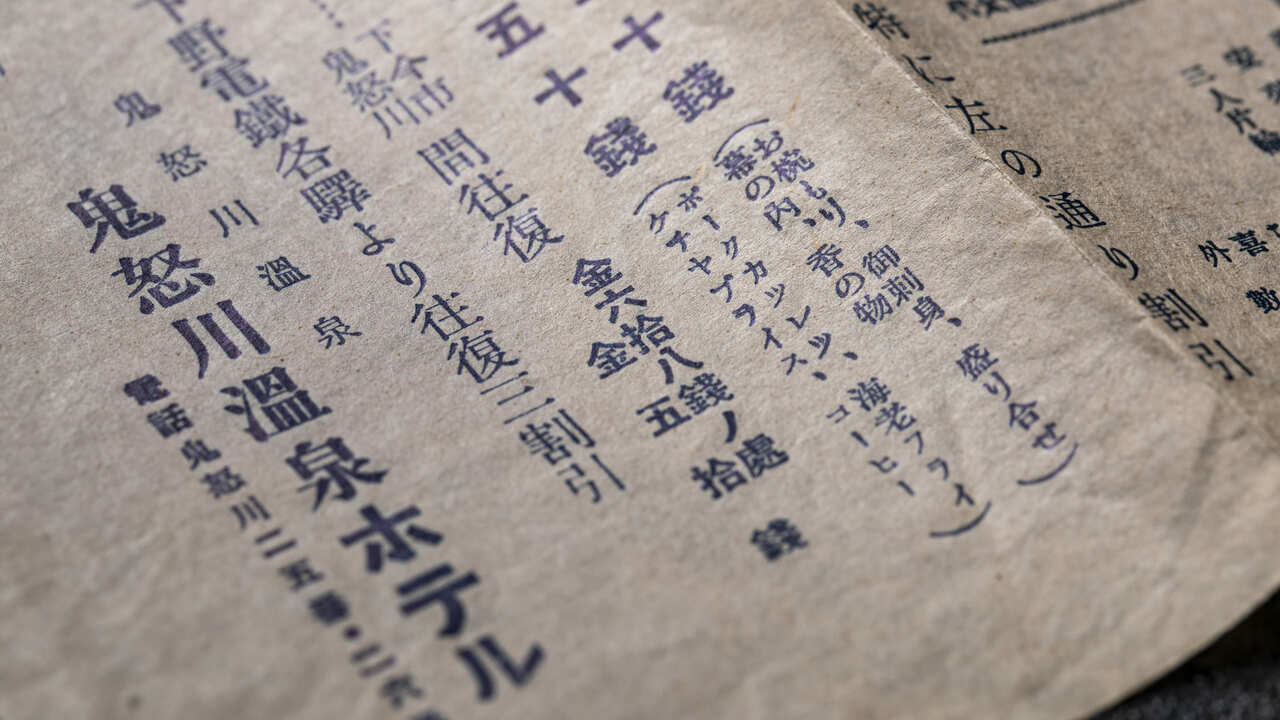 三人片輪
特に左の通り割引
十錢
（お椀もり、御刺身、盛り合せ）
幕の内、香の物、
五十錢
（ポークカツレツ、海老フライ）
ケチヤプライス、コーヒー
下今市
鬼怒川
間往復
金六拾八錢ノ處
金五拾錢
下野電鐵各驛より往復三割引
鬼怒川溫泉
鬼怒川溫泉ホテル
電話鬼怒川二五番・二六